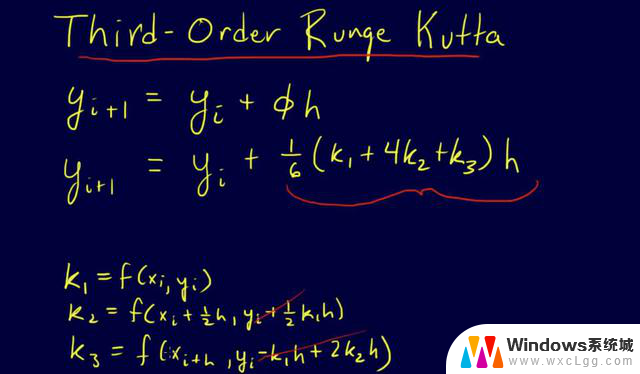 Third-Order Runge Kutta
y_{i+1} = y_i + ϕh
y_{i+1} = y_i + 1/6 (k_1 + 4k_2 + k_3) h
k_1 = f(x_i, y_i)
k_2 = f(x_i + 1/2 h, y_i + 1/2 k_1 h)
k_3 = f(x_{i+h}, y_i - k_1 h + 2k_2 h)
Windows系统城
www.wxcLgg.com